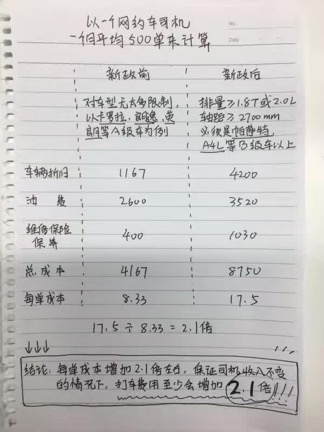 以一个网约车司机
一个月平均500单来计算
No.
Date
新政前
新政后
对车型无太多限制,
以卡罗拉、朗逸、英
朗等A级车为例
排量≥1.8T或2.0L
轴距≥2700mm
必须是帕萨特
A4L等B级车以上
车辆折旧 1167 4200
油 费 2600 3520
维修保险
保养 400 1030
总成本 4167 8750
每单成本 8.33 17.5
17.5÷8.33=2.1倍
结论: 每单成本增加2.1倍左右, 保证司机收入不变
的情况下, 打车费用至少会增加 2.1倍!!!